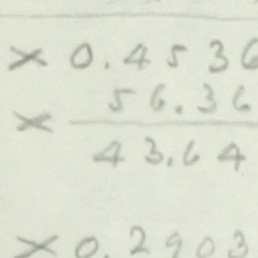 × 0.4536
56.36
×
43.64
× 0.2903